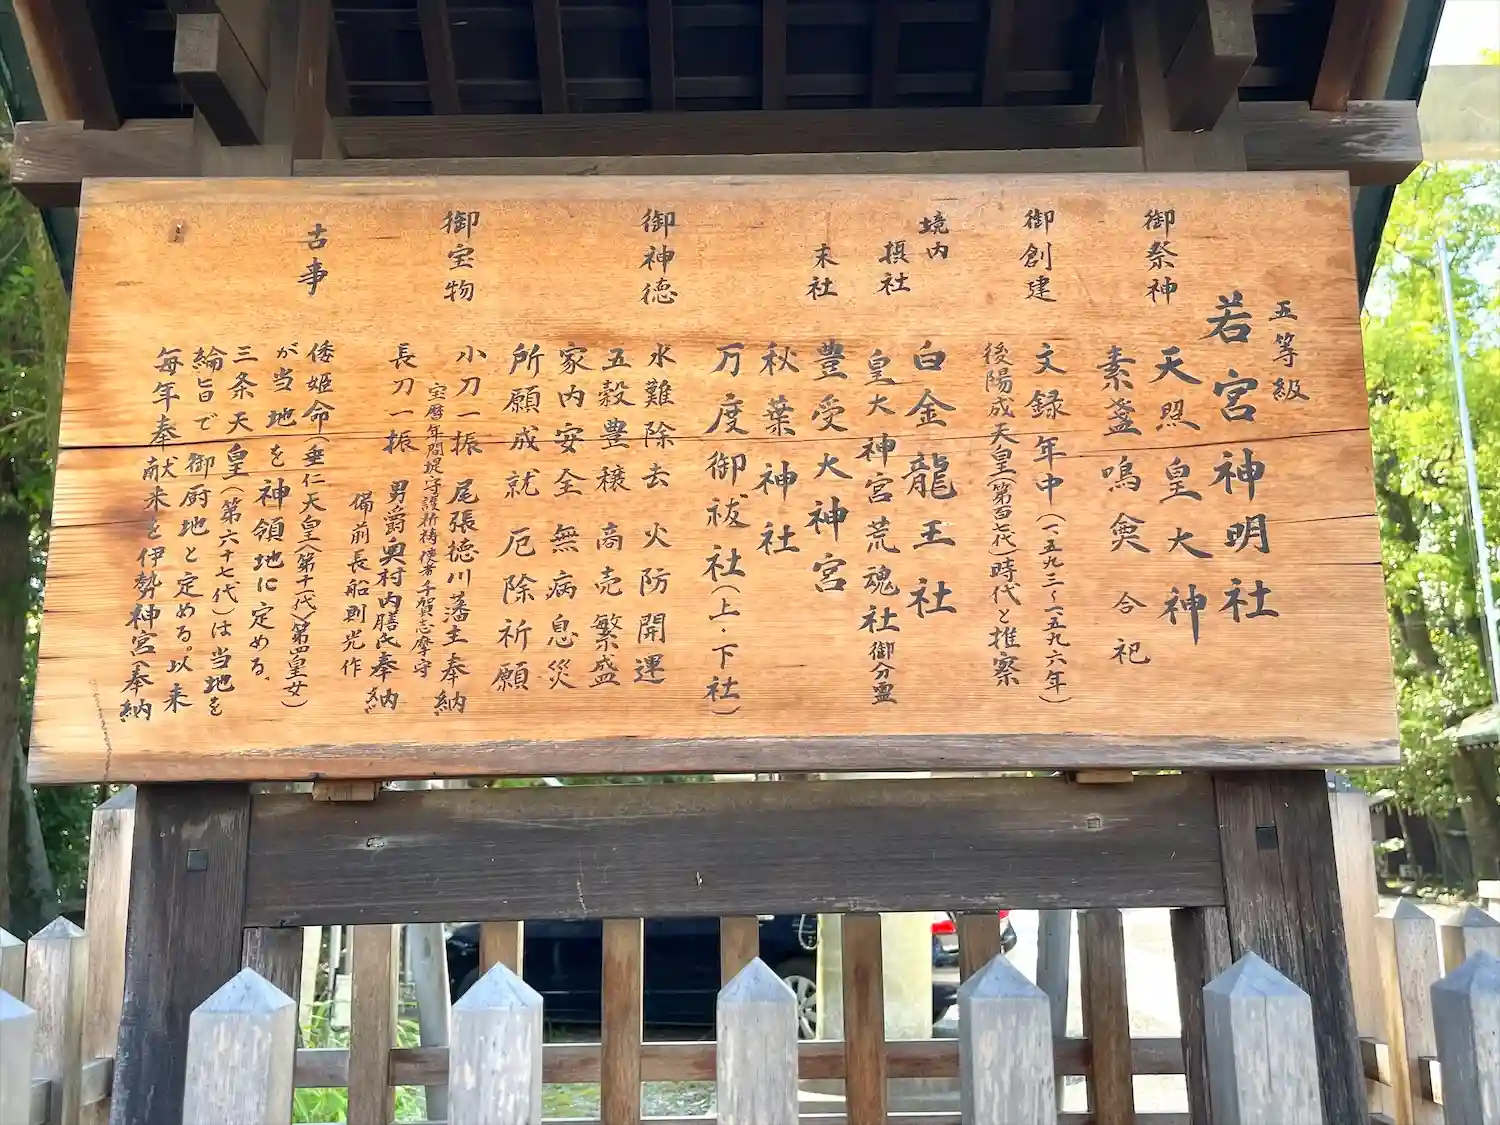 五等級
若宮神明社
御祭神
天照皇大神
素盞鳴尊 合祀
御創建
文録年中(一、五九三~一、五九六年)
後陽成天皇(第百七代)時代と推察
境内
摂社
白金龍王社
皇大神宮荒魂社御分霊
末社
豊受大神宮
秋葉神社
万度御祓社(上・下社)
御神徳
水難除去 火防開運
五穀豊穣 商売繁盛
家内安全 無病息災
所願成就 厄除祈願
御宝物
小刀一振 尾張徳川藩主奉納
宝暦年間堤守護祈祷 千賀志摩守
長刀一振 男爵奥村内膳氏奉納
備前長船則光作
古事
倭姫命(垂仁天皇(第十一代)第四皇女)
が当地を神領地に定める。
三条天皇(第六十七代)は当地を
綸旨で御厨地と定める。以来
毎年奉献米を伊勢神宮へ奉納